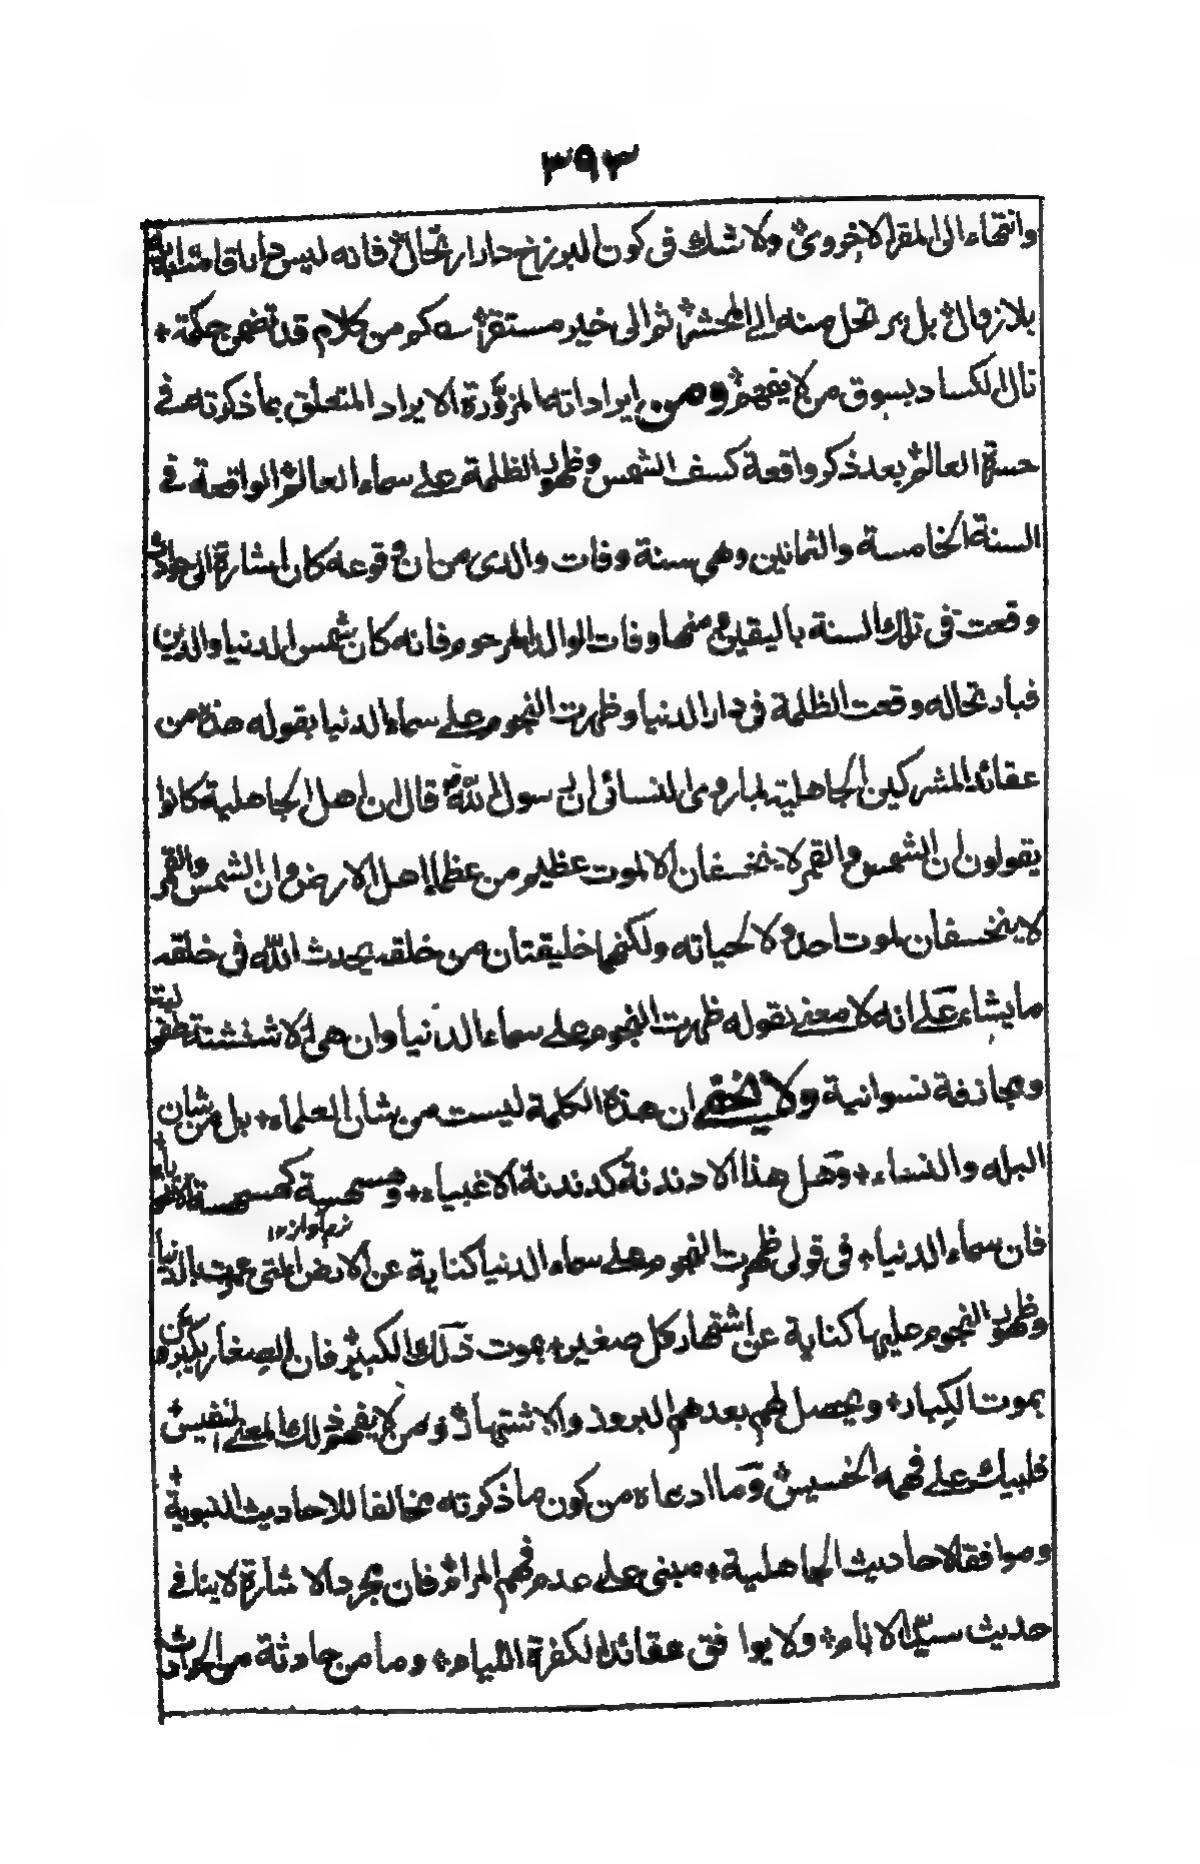 ٣٩٣
وانتهاء الى المقر الاخروى ولا شك فى كون البرزخ دار ارتحال فانه ليس دارا قامة
بلا زوال بل يرتحل منه الى المحشر ثم الى خير مستقر سه كم من كلام قد تضمن حكمة +
نال الكساد بسوق من لا يفهم ومن ايراداته المزورة الايراد المتعلق بما ذكرته فى
حسرة العالم بعد ذكر واقعة كسف الشمس وظهور الظلمة على سماء العالم الواقعة فى
السنة الخامسة والثمانين وهى سنة وفات والدى من ان وقوعه كان اشارة الى حوادث
وقعت فى تلك السنة باليقين منها وفات الوالد المرحوم فانه كان شمس الدنيا والدين
فبارتحاله وقعت الظلمة فى دار الدنيا وظهرت النجوم على سماء الدنيا بقوله هذه من
عقائد المشركين الجاهلية لما روى النسائى ان رسول الله قال ان اهل الجاهلية كانوا
يقولون ان الشمس والقمر لا ينخسفان الا لموت عظيم من عظماء اهل الارض وان الشمس والقمر
لا ينخسفان لموت احد ولا لحياته ولكنهما خليقتان من خلقه يحدث الله فى خلقه
ما يشاء على انه لا معنى لقوله ظهرت النجوم على سماء الدنيا وان هى الا شنشنة
ومجازفة نسوانية ولا يخفى ان هذه الكلمة ليست من شان العلماء + بل من شان
البله والنساء + وهل هذا الا دندنة كدندنة الاغبياء + وهسهسة كهسهسة
نرم آواز ١٢
فان سماء الدنيا + فى قولى ظهرت النجوم على سماء الدنيا كناية عن الارض التى عبرت بالدنيا
وظهور النجوم عليها كناية عن اشتهار كل صغير + بموت ذلك الكبير فان الصغار يكبرون
بموت الكبار + ويحصل لهم بعدهم البروز والاشتهار ومن لا يفهم ذلك المعنى النفيس +
فليبك على فهمه الخسيس وما ادعاه من كون ما ذكرته مخالفا للاحاديث النبوية +
وموافقا لاحاديث الجاهلية + مبنى على عدم فهم المرام فان مجرد الاشارة لا ينافى
حديث سيد الانام + ولا يوافق عقائد الكفرة اللئام + وما من حادثة من الحوادث